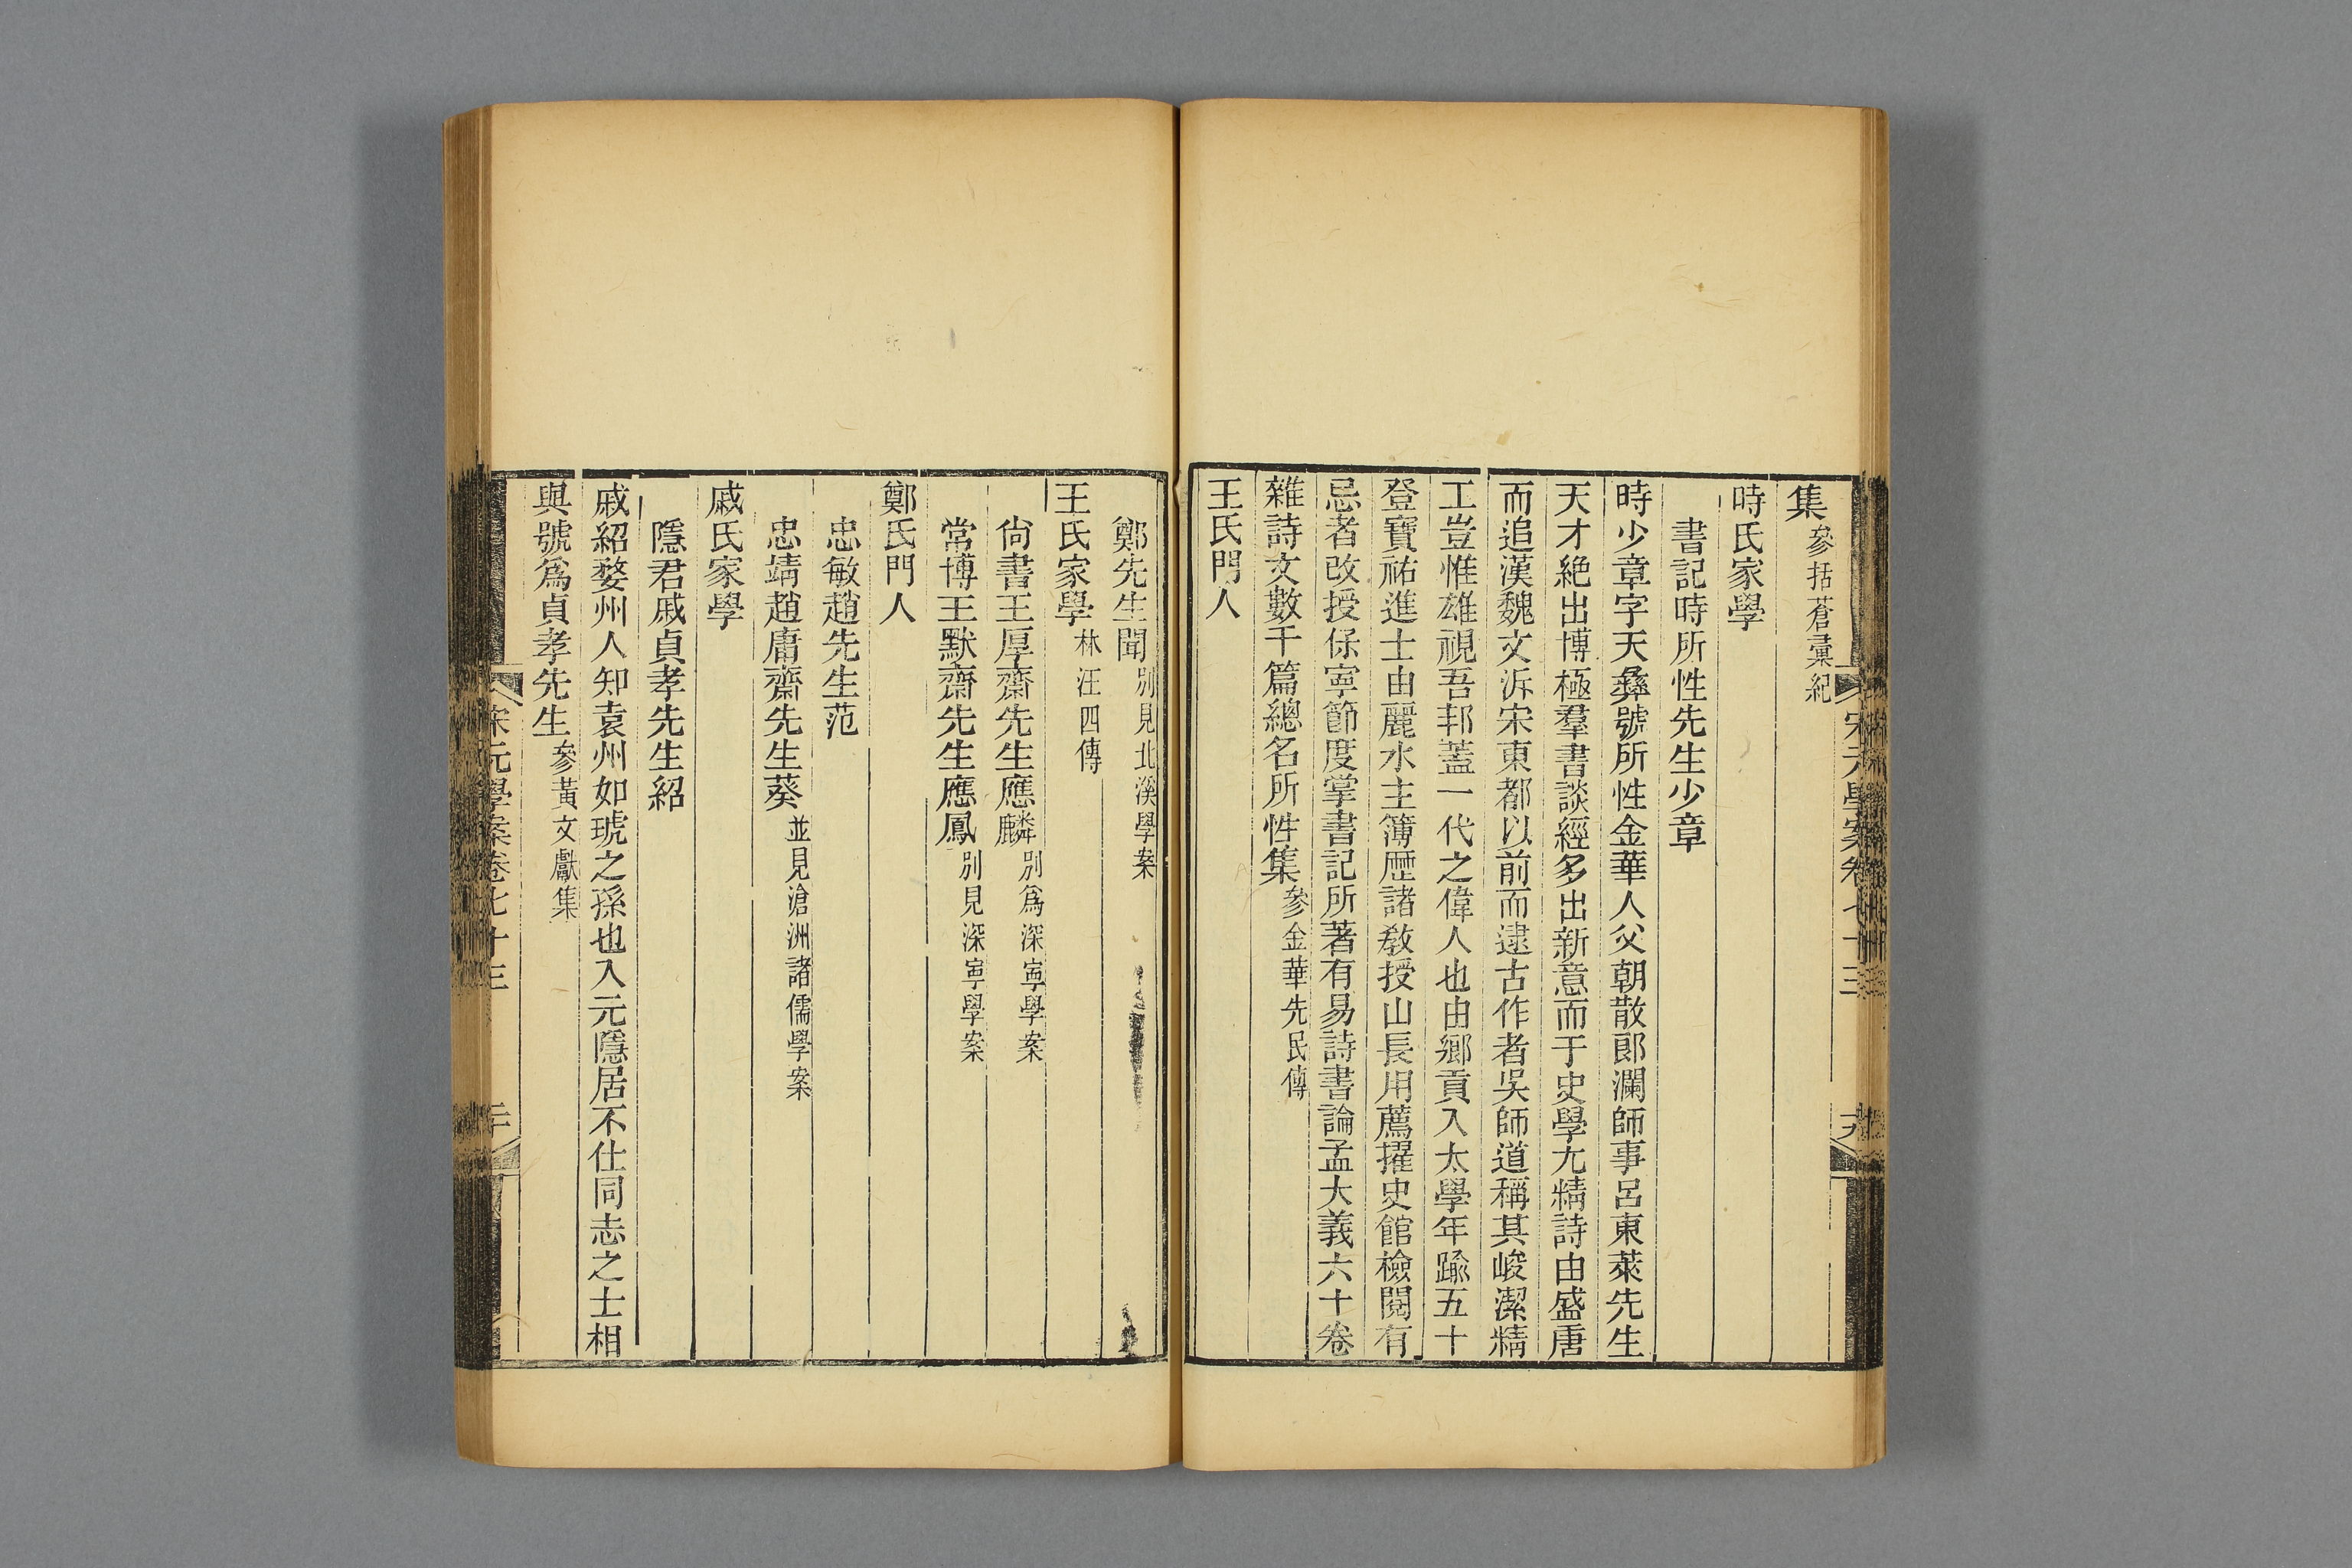 集參括蒼彙紀
時氏家學
書記時所性先生少章
時少章字天彝號所性金華人父朝散郞瀾師事呂東萊先生
天才絕出博極羣書談經多出新意而于史學尤精詩由盛唐
而追漢魏文泝宋東都以前而逮古作者吳師道稱其峻潔精
工豈惟雄視吾邦蓋一代之偉人也由鄉貢入太學年踰五十
登寶祐進士由麗水主簿歷諸敎授山長用薦擢史館檢閱有
忌者改授保寧節度掌書記所著有易詩書論孟大義六十卷
雜詩文數千篇總名所性集參金華先民傳
王氏門人
鄭先生聞別見北溪學案
王氏家學林汪四傳
尙書王厚齋先生應麟別爲深寧學案
常博王默齋先生應鳳別見深寧學案
鄭氏門人
忠敏趙先生范
忠靖趙庸齋先生葵並見滄洲諸儒學案
戚氏家學
隱君戚貞孝先生紹
戚紹婺州人知袁州如琥之孫也入元隱居不仕同志之士相
與號爲貞孝先生參黃文獻集
宋元學案卷七十三